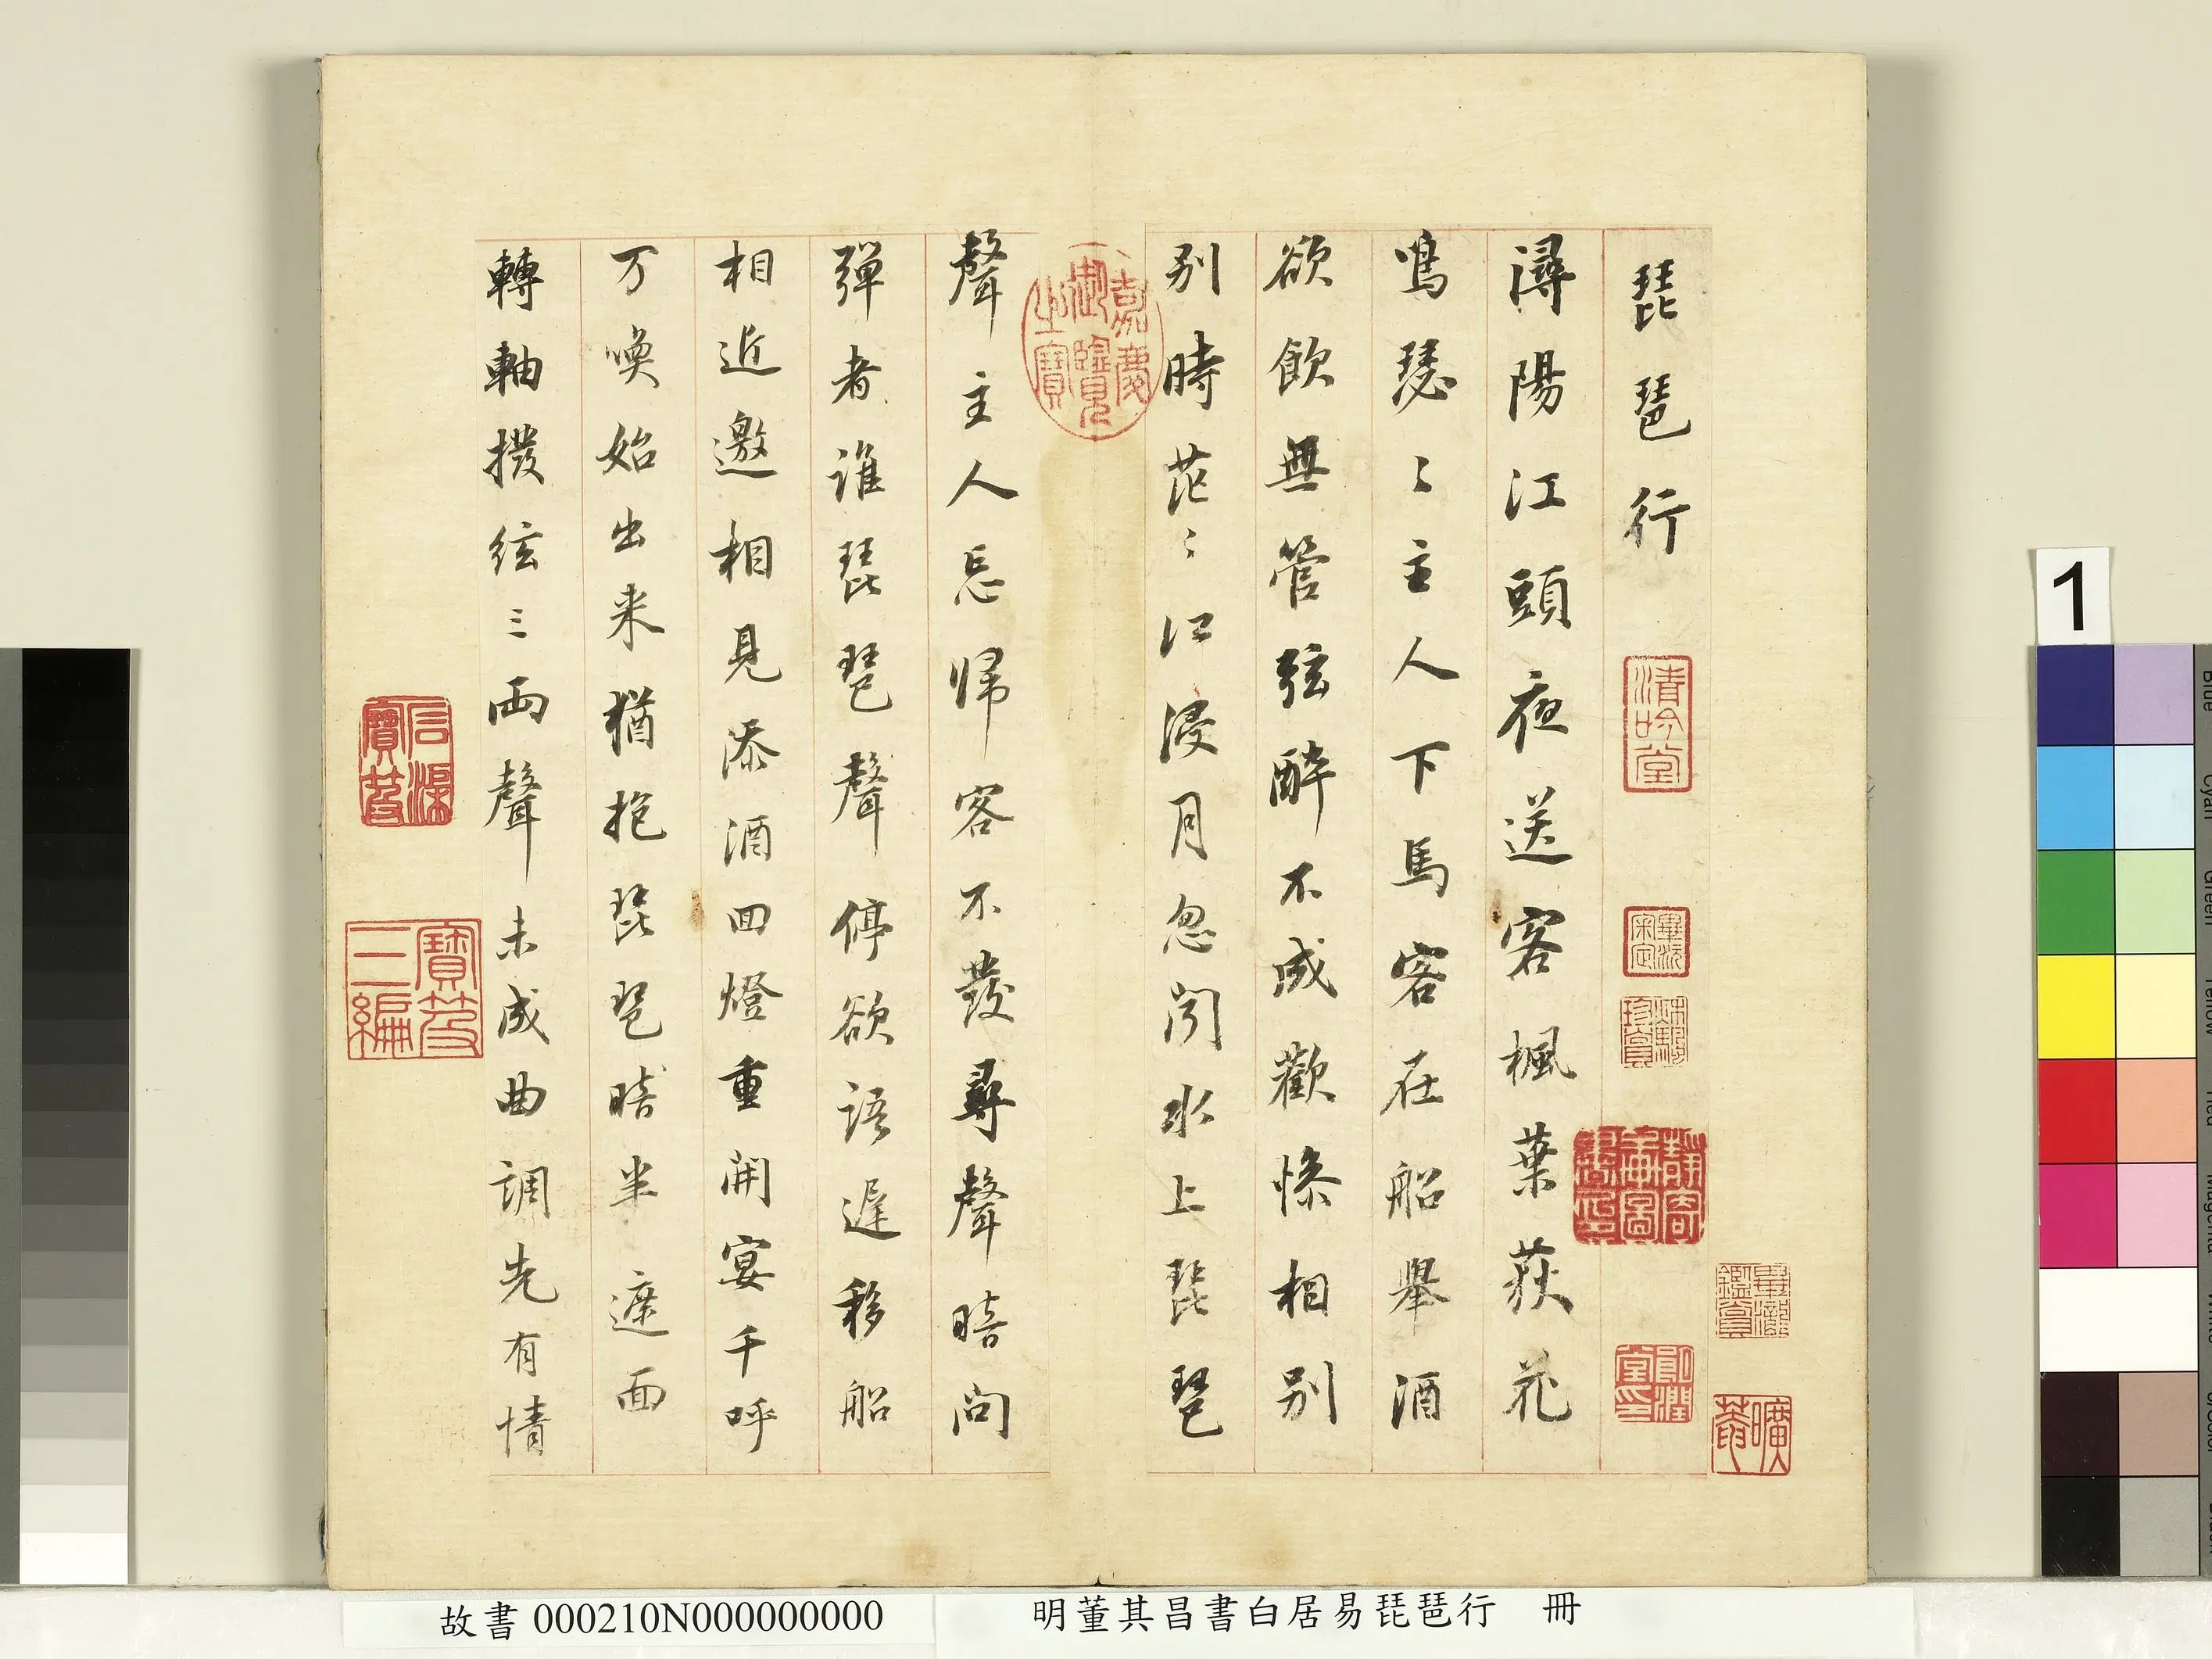 琵琶行
清吟堂
畢沅審定
潯陽江頭夜送客楓葉荻花
鳴瑟〻主人下馬客在船舉酒
欲飲無管弦醉不成歡慘相別
別時茫〻江浸月忽聞水上琵琶
嘉慶御覽之寶
聲主人忘歸客不發尋聲暗問
彈者誰琵琶聲停欲語遲移船
相近邀相見添酒回燈重開宴千呼
万喚始出来猶抱琵琶暗半遮面
轉軸撥絃三兩聲未成曲調先有情
石渠寶笈
寶笈三編
1
故書 000210N000000000
明董其昌書白居易琵琶行 冊